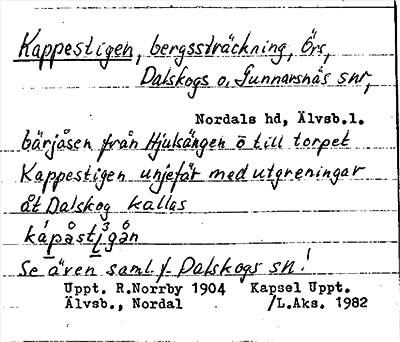 Kappestigen, bergssträckning, Örs,
Dalskogs o. Gunnarsnäs snr,
Nordals hd, Älvsb.l.
bärjåsen från Hjulsängen ö till torpet
Kappestigen unjefär med utgreningar
åt Dalskog kallas
kápåstìgån
Se även saml. f. Dalskogs sn!
Uppt. R.Norrby 1904 Kapsel Uppt.
Älvsb., Nordal /L.Aks. 1982